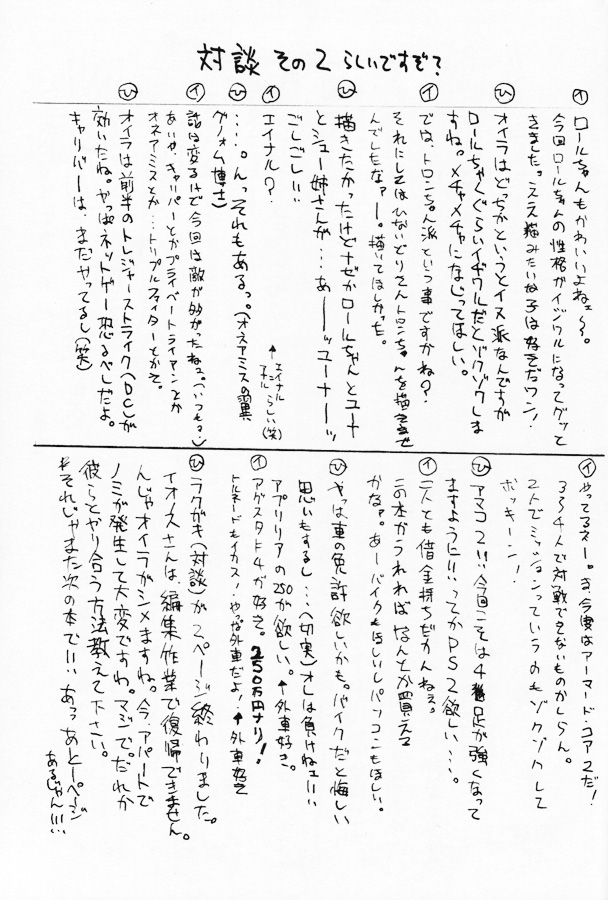 対談 その2 らしいですぞ?
イ ロールちゃんもかわいいよねェ〜。
今回ロールちゃんの性格がイジワルになってグッと
きました。ええ描みたいな子は好きだワン!
ひ オイラはどっちかというとイヌ派なんですが
ロールちゃんぐらいイヂワルだとゾクゾクしま
すね。メチャメチャにないじってほしい。
イ では、トロンちゃん派という事ですかね?
それにしてはひないどりさんトロンちゃんを描きませ
んでしたなァー。描いてほしかった。
ひ 描きたかったけどナゼかロールちゃんとユーナ
とシュー姉さんが…あ――ッユーナ――ッ
ごしごしい
イ エイナル?
↑エイナル らしい(笑)
ひ ……。んっそれもあるっ。(オネアミスの翼
グノォム博士)
イ 話は変るけで今回は敵が多かったねェ。(いつも?)
あいや、キャリバーとかプライベートライアンとか
オネアミスとか…トリプルファイターとかさ。
ひ オイラは前半のトレジャーストライク(DC)が
効いたね。やっぱネットゲー恐るべしだよ。
キャリバーは、まだやってるし(笑)
イ やってるネー。さ、今度はアーマード・コア2だ!
3〜4人で対戦できないものかしらん。
2人でミッションっていうのもゾクゾクして
ボッキーン!
ひ アマコア2!!今回こそは4脚足が強くなって
ますように!!ってかPS2欲しい…。
イ 二人とも借金持ちだかんねェ。
この本がうれればなんとか買える
かなァ。あーバイクもほしいしパソコンもほしい。
ひ やっは車の免許欲しいかも。バイクだと悔しい
思いもするし…(切実)オレは負けねェ!!
イ アプリリアの250が欲しい。↑外車好き。
アグスタF4が好き。250万円ナリ!
トルネードもイカス!やな外車だよ!↑外車好き
ひ ラクガキ(対談)が2ページ終わりました。
イオノスさんは編集作業で復帰できません。
んじゃオイラがシメますね。今、アパートで
ノミが発生して大変ですね。マジで。だれか
彼らとやり合う方法教えて下さい。
*それじゃまた次の本で!!!あぅあと一ページ
あるじゃん!!!